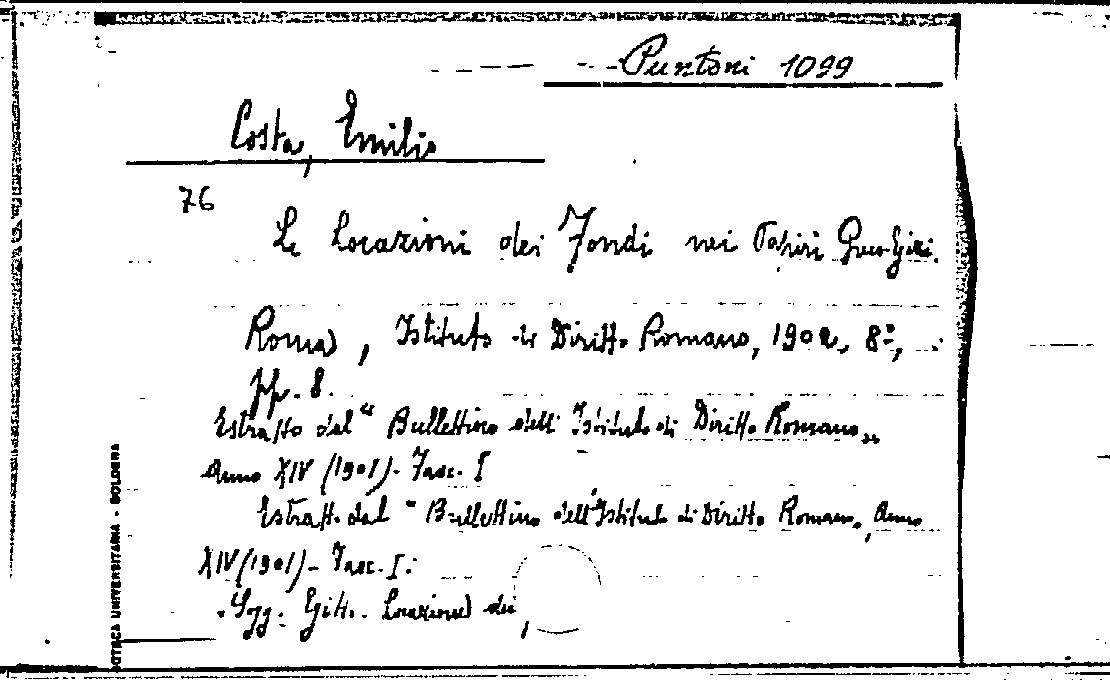 Puntoni 1099
Costa, Emilio
76
Le locazioni dei Fondi nei Papiri Greco-Egizi.
Roma, Istituto di Diritto Romano, 1902, 8º,
pp. 8.
Estratto dal "Bullettino dell'Istituto di Diritto Romano„
Anno XIV (1901) - Fasc. I
Estratto dal "Bullettino dell'Istituto di Diritto Romano, Anno
XIV (1901) - Fasc. I.
Sogg: Egitto. Locazione dei,
OTECA UNIVERSITARIA - BOLOGNA